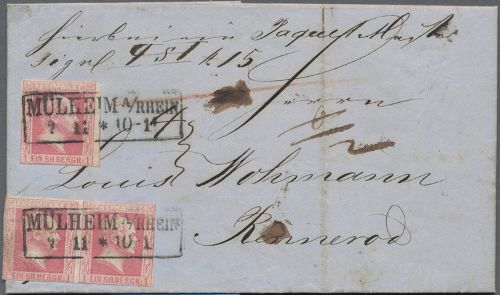 Hierbei ein Paquet Marke
sign. 9 S 1 k. 15
FREIMARKE
MÜLHEIM A/RHEIN
7 11 * 10-1
1 EIN SILBERGR. 1
Herrn
Louis Wohmann
MÜLHEIM A/RHEIN
7 11 * 10-1
1 EIN SILBERGR. 1 EIN SILBERGR. 1
Rennerod